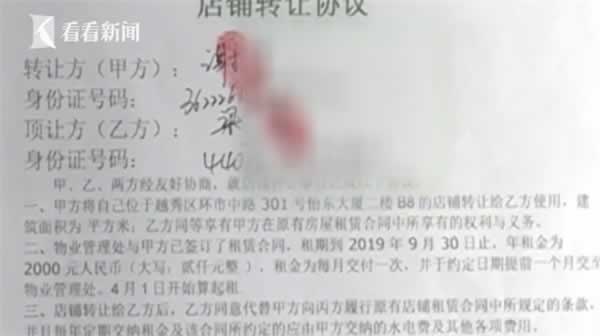 看看新闻
店铺转让协议
转让方（甲方）：谢
身份证号码：36222
顶让方（乙方）：梁
身份证号码：440
甲、乙、两方经友好协商，就
一、甲方将自己位于越秀区环市中路 301 号怡东大厦二楼 B8 的店铺转让给乙方使用，建
筑面积为 平方米；乙方同等享有甲方在原有房屋租赁合同中所享有的权利与义务。
二、物业管理处与甲方已签订了租赁合同，租期到 2019 年 9 月 30 日止，年租金为
2000 元人民币（大写：贰仟元整 ），租金为每月交付一次，并于约定日期提前一个月交至
物业管理处。4 月 1 日开始算起租.
三、店铺转让给乙方后，乙方同意代替甲方向丙方履行原有店铺租赁合同中所规定的条款，
并且每年定期交纳租金及该合同所约定的应由甲方交纳的水电费及其他各项费用。